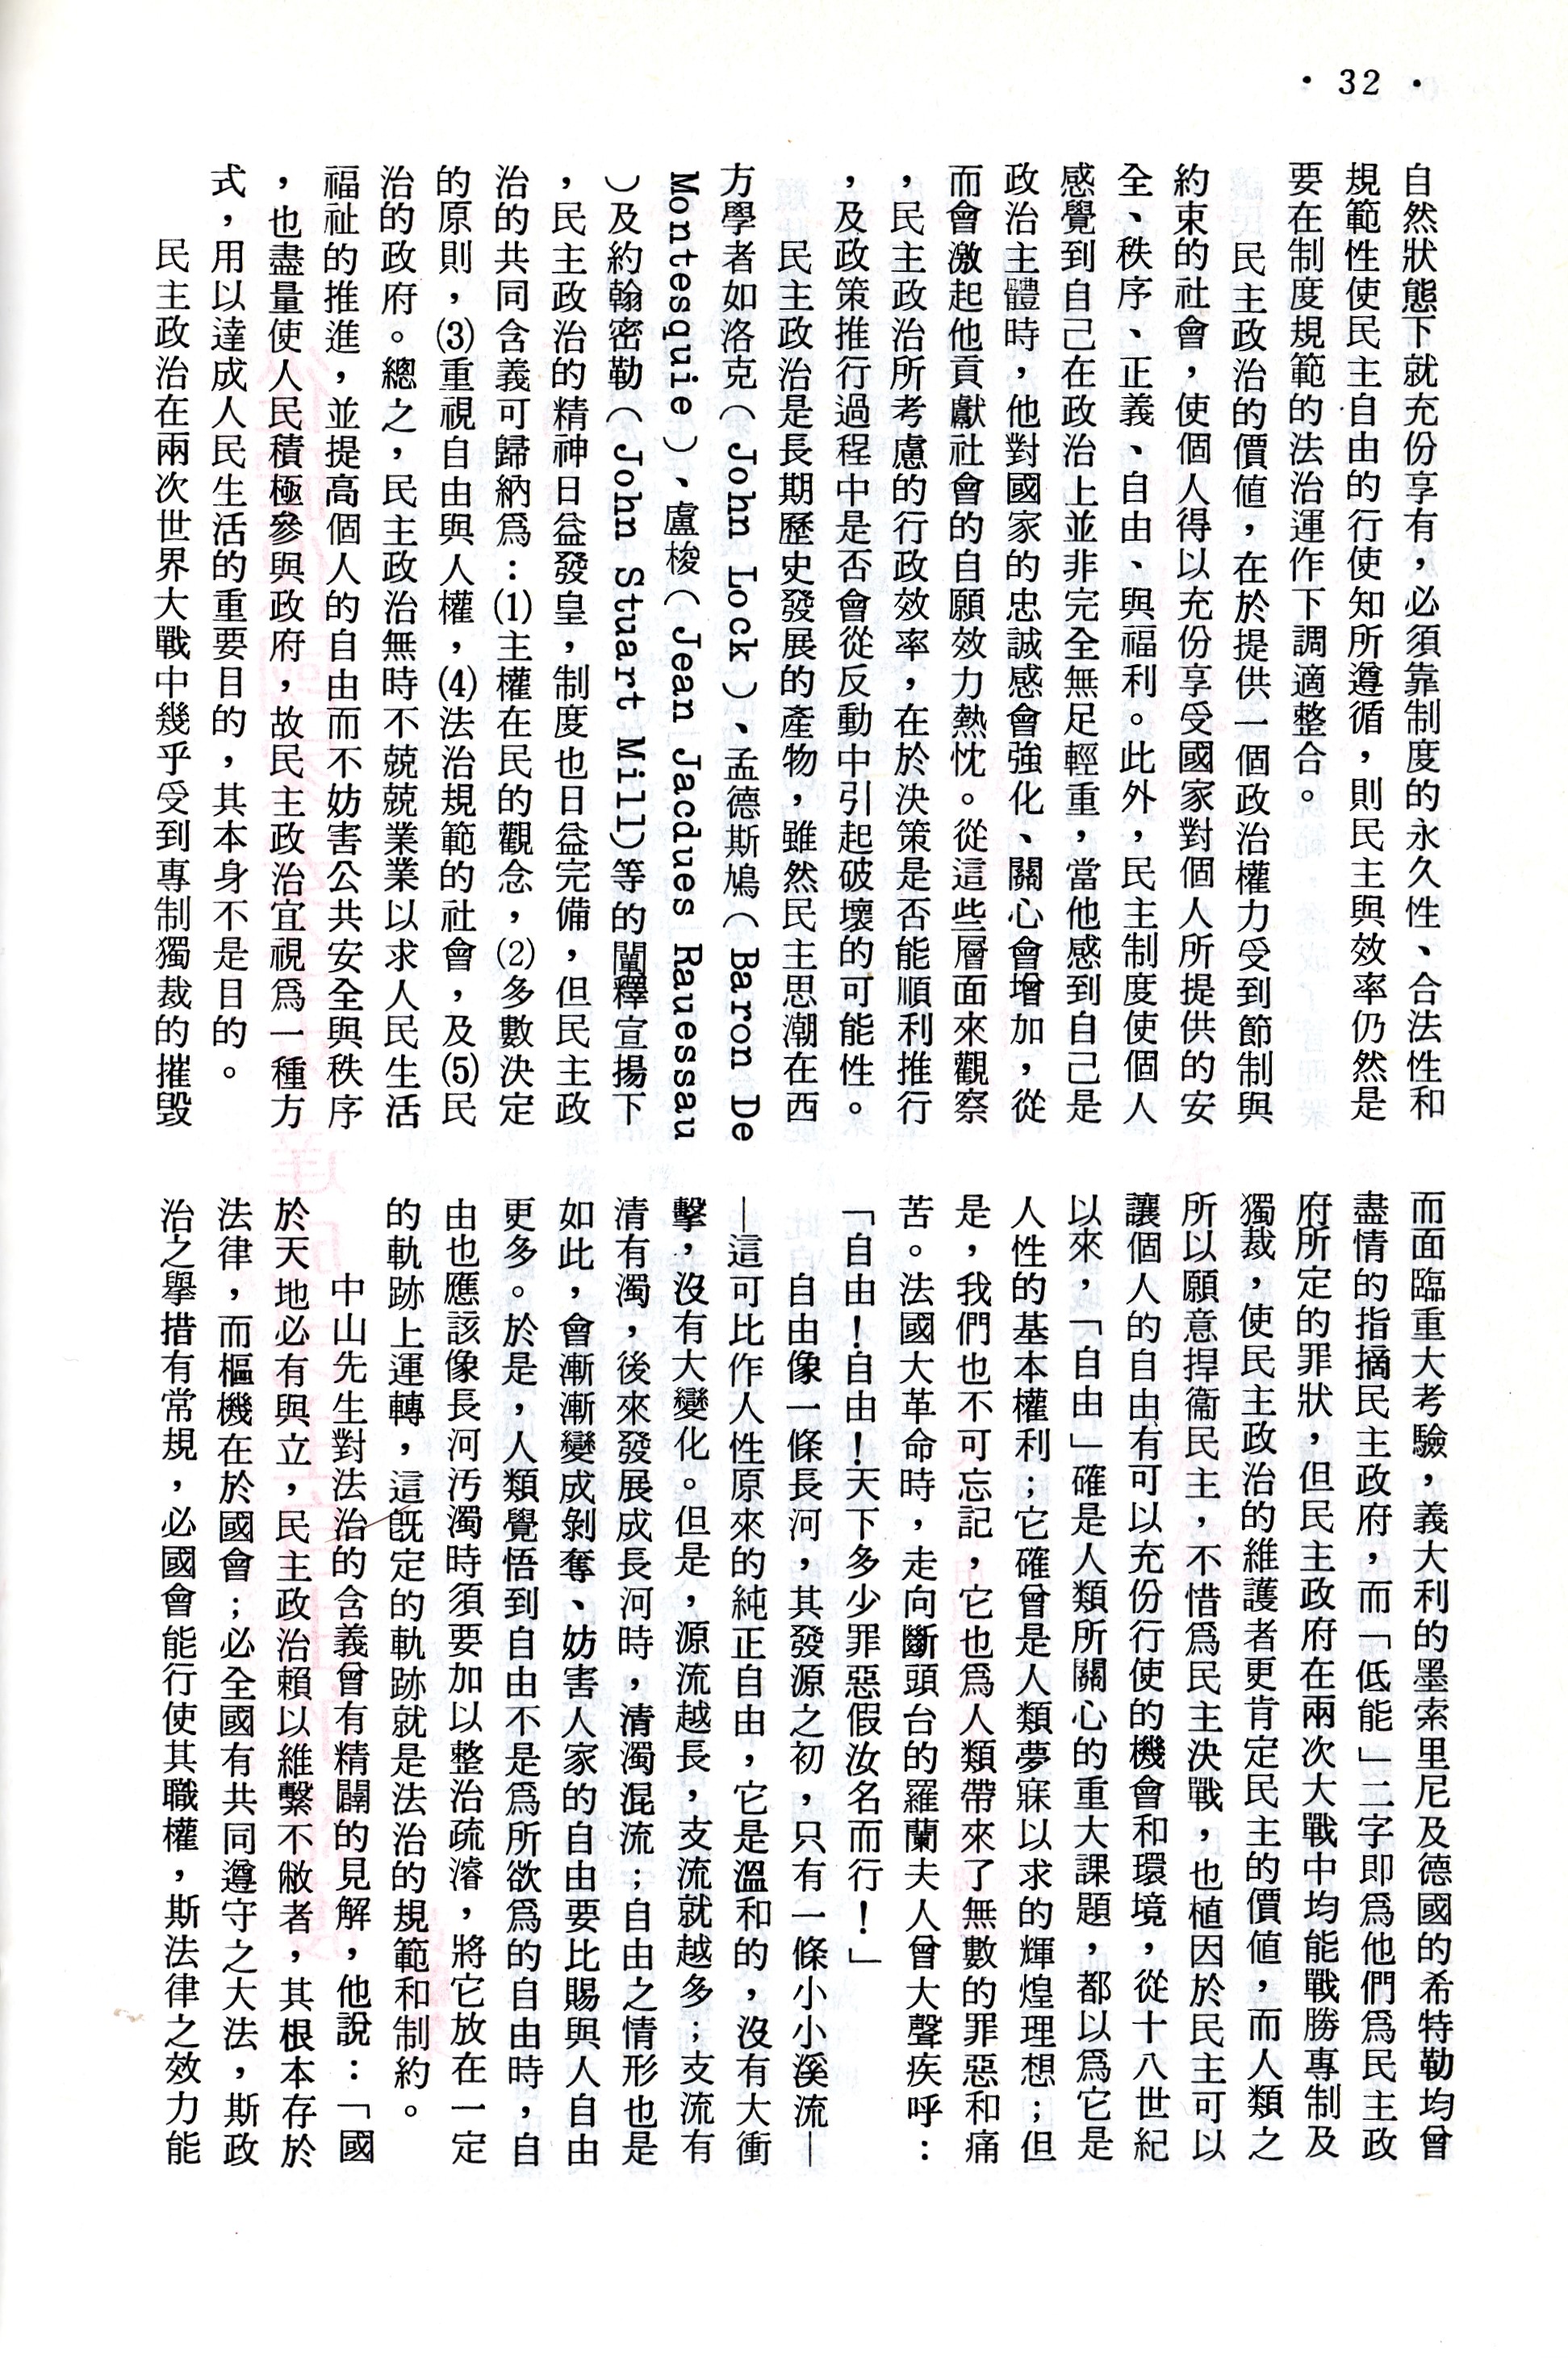 • 32 •
自然狀態下就充份享有，必須靠制度的永久性、合法性和
規範性使民主自由的行使知所遵循，則民主與效率仍然是
要在制度規範的法治運作下調適整合。
民主政治的價值，在於提供一個政治權力受到節制與
約束的社會，使個人得以充份享受國家對個人所提供的安
全、秩序、正義、自由、與福利。此外，民主制度使個人
感覺到自己在政治上並非完全無足輕重，當他感到自己是
政治主體時，他對國家的忠誠感會強化、關心會增加，從
而會激起他貢獻社會的自願效力熱忱。從這些層面來觀察
，民主政治所考慮的行政效率，在於決策是否能順利推行
，及政策推行過程中是否會從反動中引起破壞的可能性。
民主政治是長期歷史發展的產物，雖然民主思潮在西
方學者如洛克（John Lock）、孟德斯鳩（Baron De
Montesquie）、盧梭（Jean Jacdues Rauessau
）及約翰密勒（John Stuart Mill）等的闡釋宣揚下
，民主政治的精神日益發皇，制度也日益完備，但民主政
治的共同含義可歸納爲：(1)主權在民的觀念，(2)多數決定
的原則，(3)重視自由與人權，(4)法治規範的社會，及(5)民
治的政府。總之，民主政治無時不兢兢業業以求人民生活
福祉的推進，並提高個人的自由而不妨害公共安全與秩序
，也盡量使人民積極參與政府，故民主政治宜視爲一種方
式，用以達成人民生活的重要目的，其本身不是目的。
民主政治在兩次世界大戰中幾乎受到專制獨裁的摧毀
而面臨重大考驗，義大利的墨索里尼及德國的希特勒均曾
盡情的指摘民主政府，而「低能」二字即爲他們爲民主政
府所定的罪狀，但民主政府在兩次大戰中均能戰勝專制及
獨裁，使民主政治的維護者更肯定民主的價值，而人類之
所以願意捍衞民主，不惜爲民主決戰，也植因於民主可以
讓個人的自由有可以充份行使的機會和環境，從十八世紀
以來，「自由」確是人類所關心的重大課題，都以爲它是
人性的基本權利；它確曾是人類夢寐以求的輝煌理想；但
是，我們也不可忘記，它也爲人類帶來了無數的罪惡和痛
苦。法國大革命時，走向斷頭台的羅蘭夫人曾大聲疾呼：
「自由！自由！天下多少罪惡假汝名而行！」
自由像一條長河，其發源之初，只有一條小小溪流—
—這可比作人性原來的純正自由，它是溫和的，沒有大衝
擊，沒有大變化。但是，源流越長，支流就越多；支流有
清有濁，後來發展成長河時，清濁混流；自由之情形也是
如此，會漸漸變成剝奪、妨害人家的自由要比賜與人自由
更多。於是，人類覺悟到自由不是爲所欲爲的自由時，自
由也應該像長河汚濁時須要加以整治疏濬，將它放在一定
的軌跡上運轉，這旣定的軌跡就是法治的規範和制約。
中山先生對法治的含義曾有精闢的見解，他說：「國
於天地必有與立，民主政治賴以維繫不敝者，其根本存於
法律，而樞機在於國會；必全國有共同遵守之大法，斯政
治之擧措有常規，必國會能行使其職權，斯法律之效力能